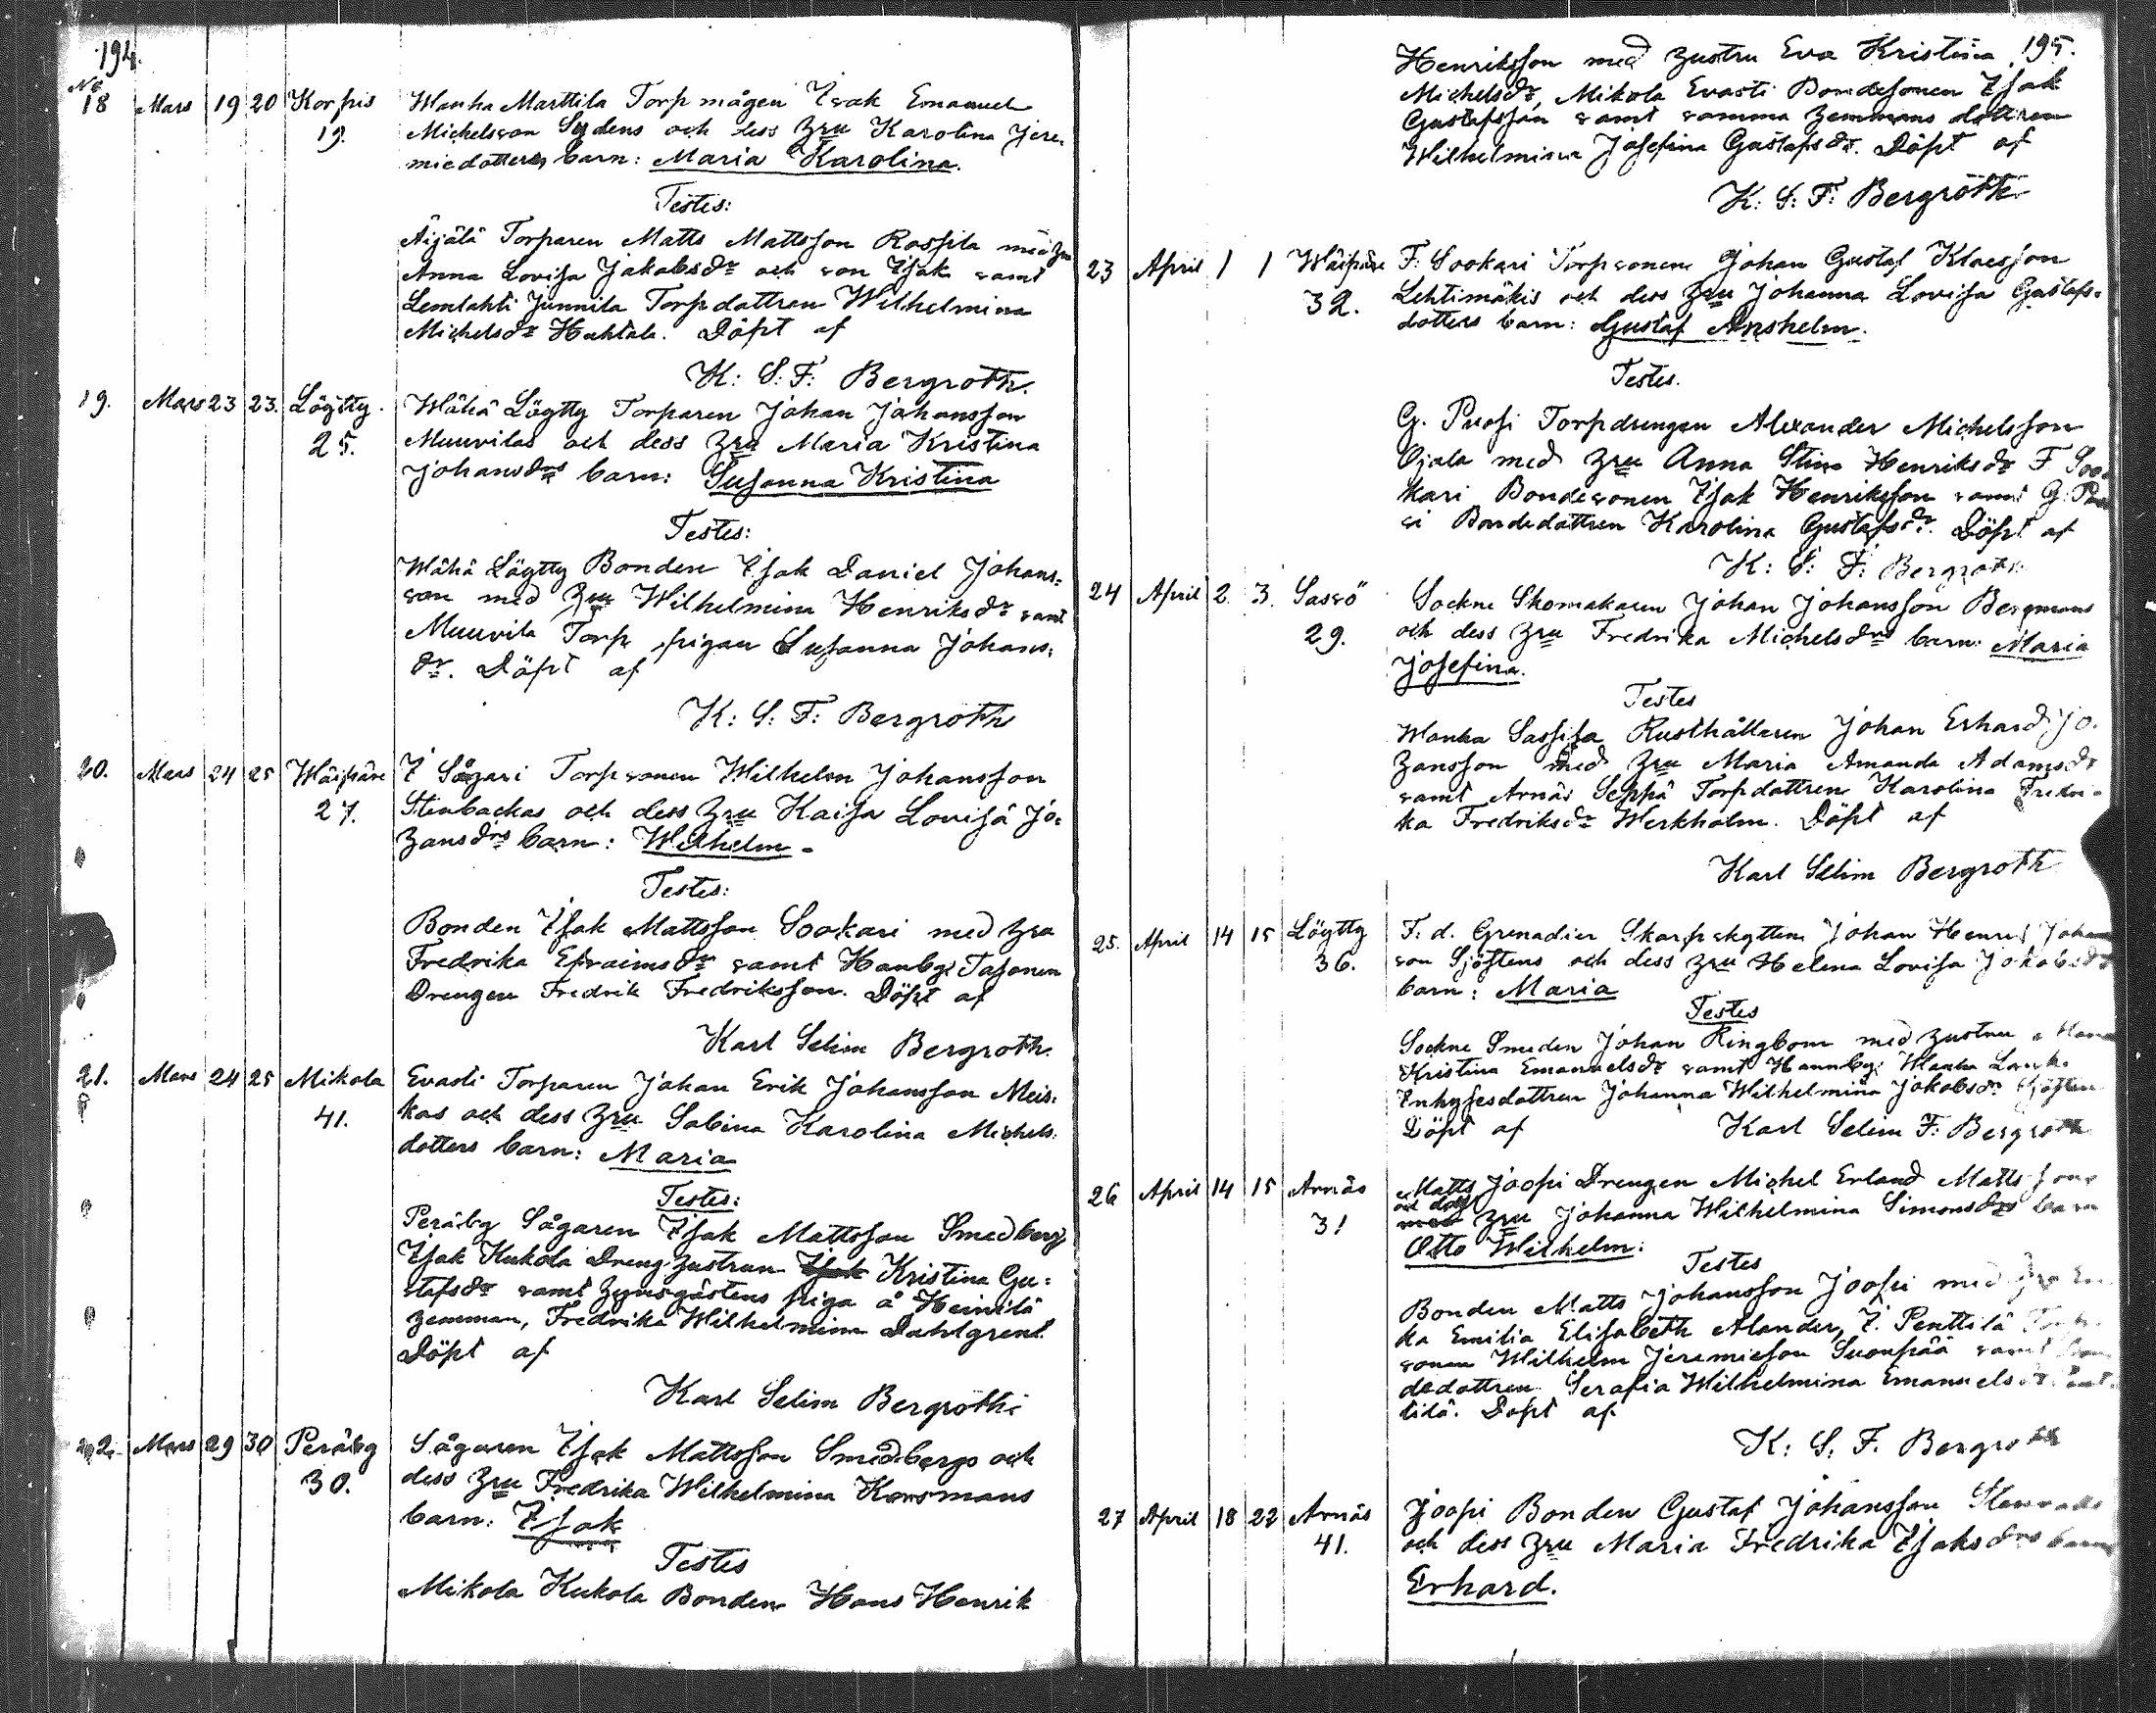 194.
No
18 Mars 19 20 Korpis Wanha Marttila Torpmågen Isak Emanuel
19. Michelsson Sydens och dess Hru Karolina Jere-
miedotters barn: Maria Karolina.
Testes:
Äijälä Torparen Matts Mattsson Rossila med Hru
Anna Lovisa Jakobsdr och son Isak samt
Lemlahti Junnila Torpdottren Wilhelmina
Michelsdr Huhtala. Döpt af
K: S: F: Bergroth.
19. Mars 23 23. Löytty. Wähä Löytty Torparen Johan Johansson
25. Muuvilas och dess Hru Maria Kristina
Johansdrs barn: Susanna Kristina
Testes:
Wähä Löytty Bonden Isak Daniel Johans-
son med Hru Wilhelmina Henriksdr samt
Muuvila Torp pigan Susanna Johans-
dr. Döpt af
K: S: F: Bergroth
20. Mars 24 25 Wäipäre I Sågari Torpsonen Wilhelm Johansson
27. Stenbackas och dess Hru Kaisa Lovisa Jo-
hansdrs barn: Wilhelm
Testes:
Bonden Isak Mattsson Sookari med Hru
Fredrika Efraimsdr samt Hanbg: Tasonen
Drengen Fredrik Fredriksson. Döpt af
Karl Selim Bergroth.
21. Mars 24 25 Mikola Evasti Torparen Johan Erik Johansson Meis-
41. kas och dess Hru Sabina Karolina Michels-
dotters barn: Maria
Testes:
Peräby Sågaren Isak Mattsson Smedberg
Isak Kukola Dreng hustrun Isak Kristina Gu-
stafsdr samt hyresgästens piga å Heinilä
hemman, Fredrika Wilhelmina Dahlgren.
Döpt af
Karl Selim Bergroth:
22. Mars 29 30 Peräby Sågaren Isak Mattsson Smedbergs och
30. dess Hru Fredrika Wilhelmina Korsmans
barn: Isak
Testes
Mikola Kukola Bonden Hans Henrik
195.
Henriksson med hustru Eva Kristina
Michelsdr, Mikola Evasti Bondesonen Isak
Gustafsson samt samma hemmans dottren
Wilhelmina Josefina Gustafsdr. Döpt af
K: S: F: Bergroth
23 April 1 1 Wäipäre F: Sookari Torpsonen Johan Gustaf Klaesson
32. Lehtimäkis och dess Hru Johanna Lovisa Gustafs-
dotters barn: Gustaf Anshelm.
Testes.
G. Puosi Torpdrengen Alexander Michelsson
Ojala med Hru Anna Stina Henriksdr F. Soo
kari Bondesonen Isak Henriksson samt G:
si Bondedottren Karolina Gustafsdr. Döpt af
K: S: F: Bergroth
24 April 2. 3. Sassö Sockne Skomakaren Johan Johansson Bergmans
29. och dess Hru Fredrika Michelsdrs barn: Maria
Josefina.
Testes
Wanha Sassila Rusthållaren Johan Erhard Jo-
hansson med Hru Maria Amanda Adamsdr
samt Arnäs Seppä Torpdottren Karolina Fredri-
ka Fredriksdr Werkholm. Döpt af
Karl Selim Bergroth
25. April 14 15 Löytty F. d. Grenadier Skarpskytten Johan Henrik Johans
36. son Sjöstens och dess Hru Helena Lovisa Jakobsdr
barn: Maria
Testes
Sockne Smeden Johan Ringbom med hustru
Kristina Emanuelsdr samt Hannbg: Wanha
Inhysesdottren Johanna Wilhelmina Jakobsdr Sjösten
Döpt af Karl Selim F: Bergroth
26 April 14 15 Arnäs Matts Joopi Drengen Michel Erland Mattssons
och dess
31 med Hru Johanna Wilhelmina Simonsdrs barn
Otto Wilhelm:
Testes
Bonden Matts Johansson Joopi med Hru
ka Emilia Elisabeth Alander, I. Penttilä Torp-
sonen Wilhelm Jeremiesson Suonpää samt
dedottren Serafia Wilhelmina Emanuelsdr
tilä. Döpt af
K: S: F. Bergroth
27 April 18 22 Arnäs Joopi Bonden Gustaf Johansson
41. och dess Hru Maria Fredrika Isaksdrs barn
Erhard.